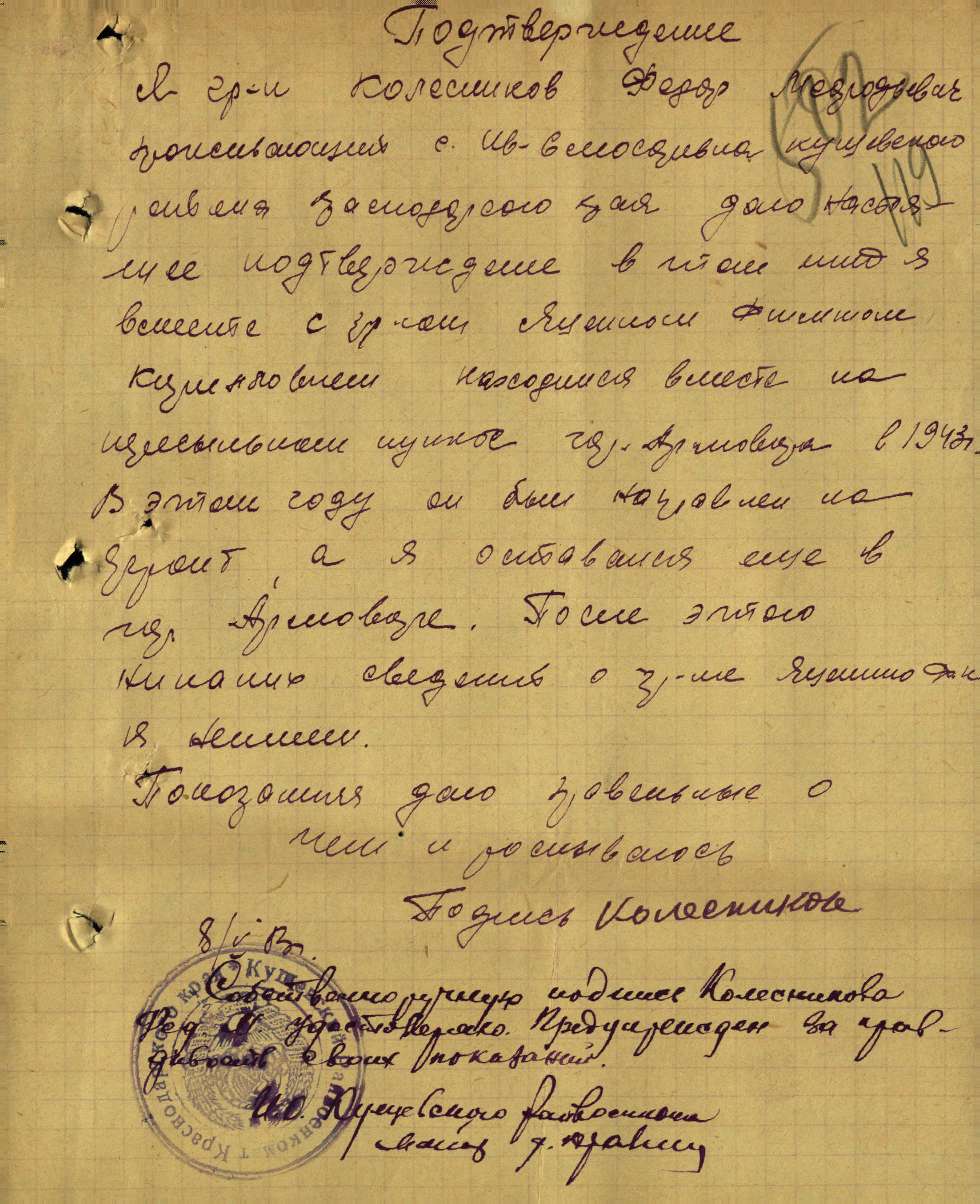 Подтверждение
Я гр-н Колесников Федор
проживающий с. Кущевского
района Краснодарского края даю настоя-
щее подтверждение в том что я
вместе с гр-ном Яценком
находился вместе на
пересыльном пункте гор. Армовира в 1943 г.
В этом году он был направлен на
фронт, а я оставался еще в
гор. Армовире. После этого
никаких сведений о гр-не Яценко
я не имею.
Показания даю правельные о
чем и росписываюсь
Подпись Колесников
8/V
Собственноручную подпись Колесникова
Фед. М удостоверяю. Предупрежден за прав-
дивость своих показаний.
Кущевского Райвоенкома